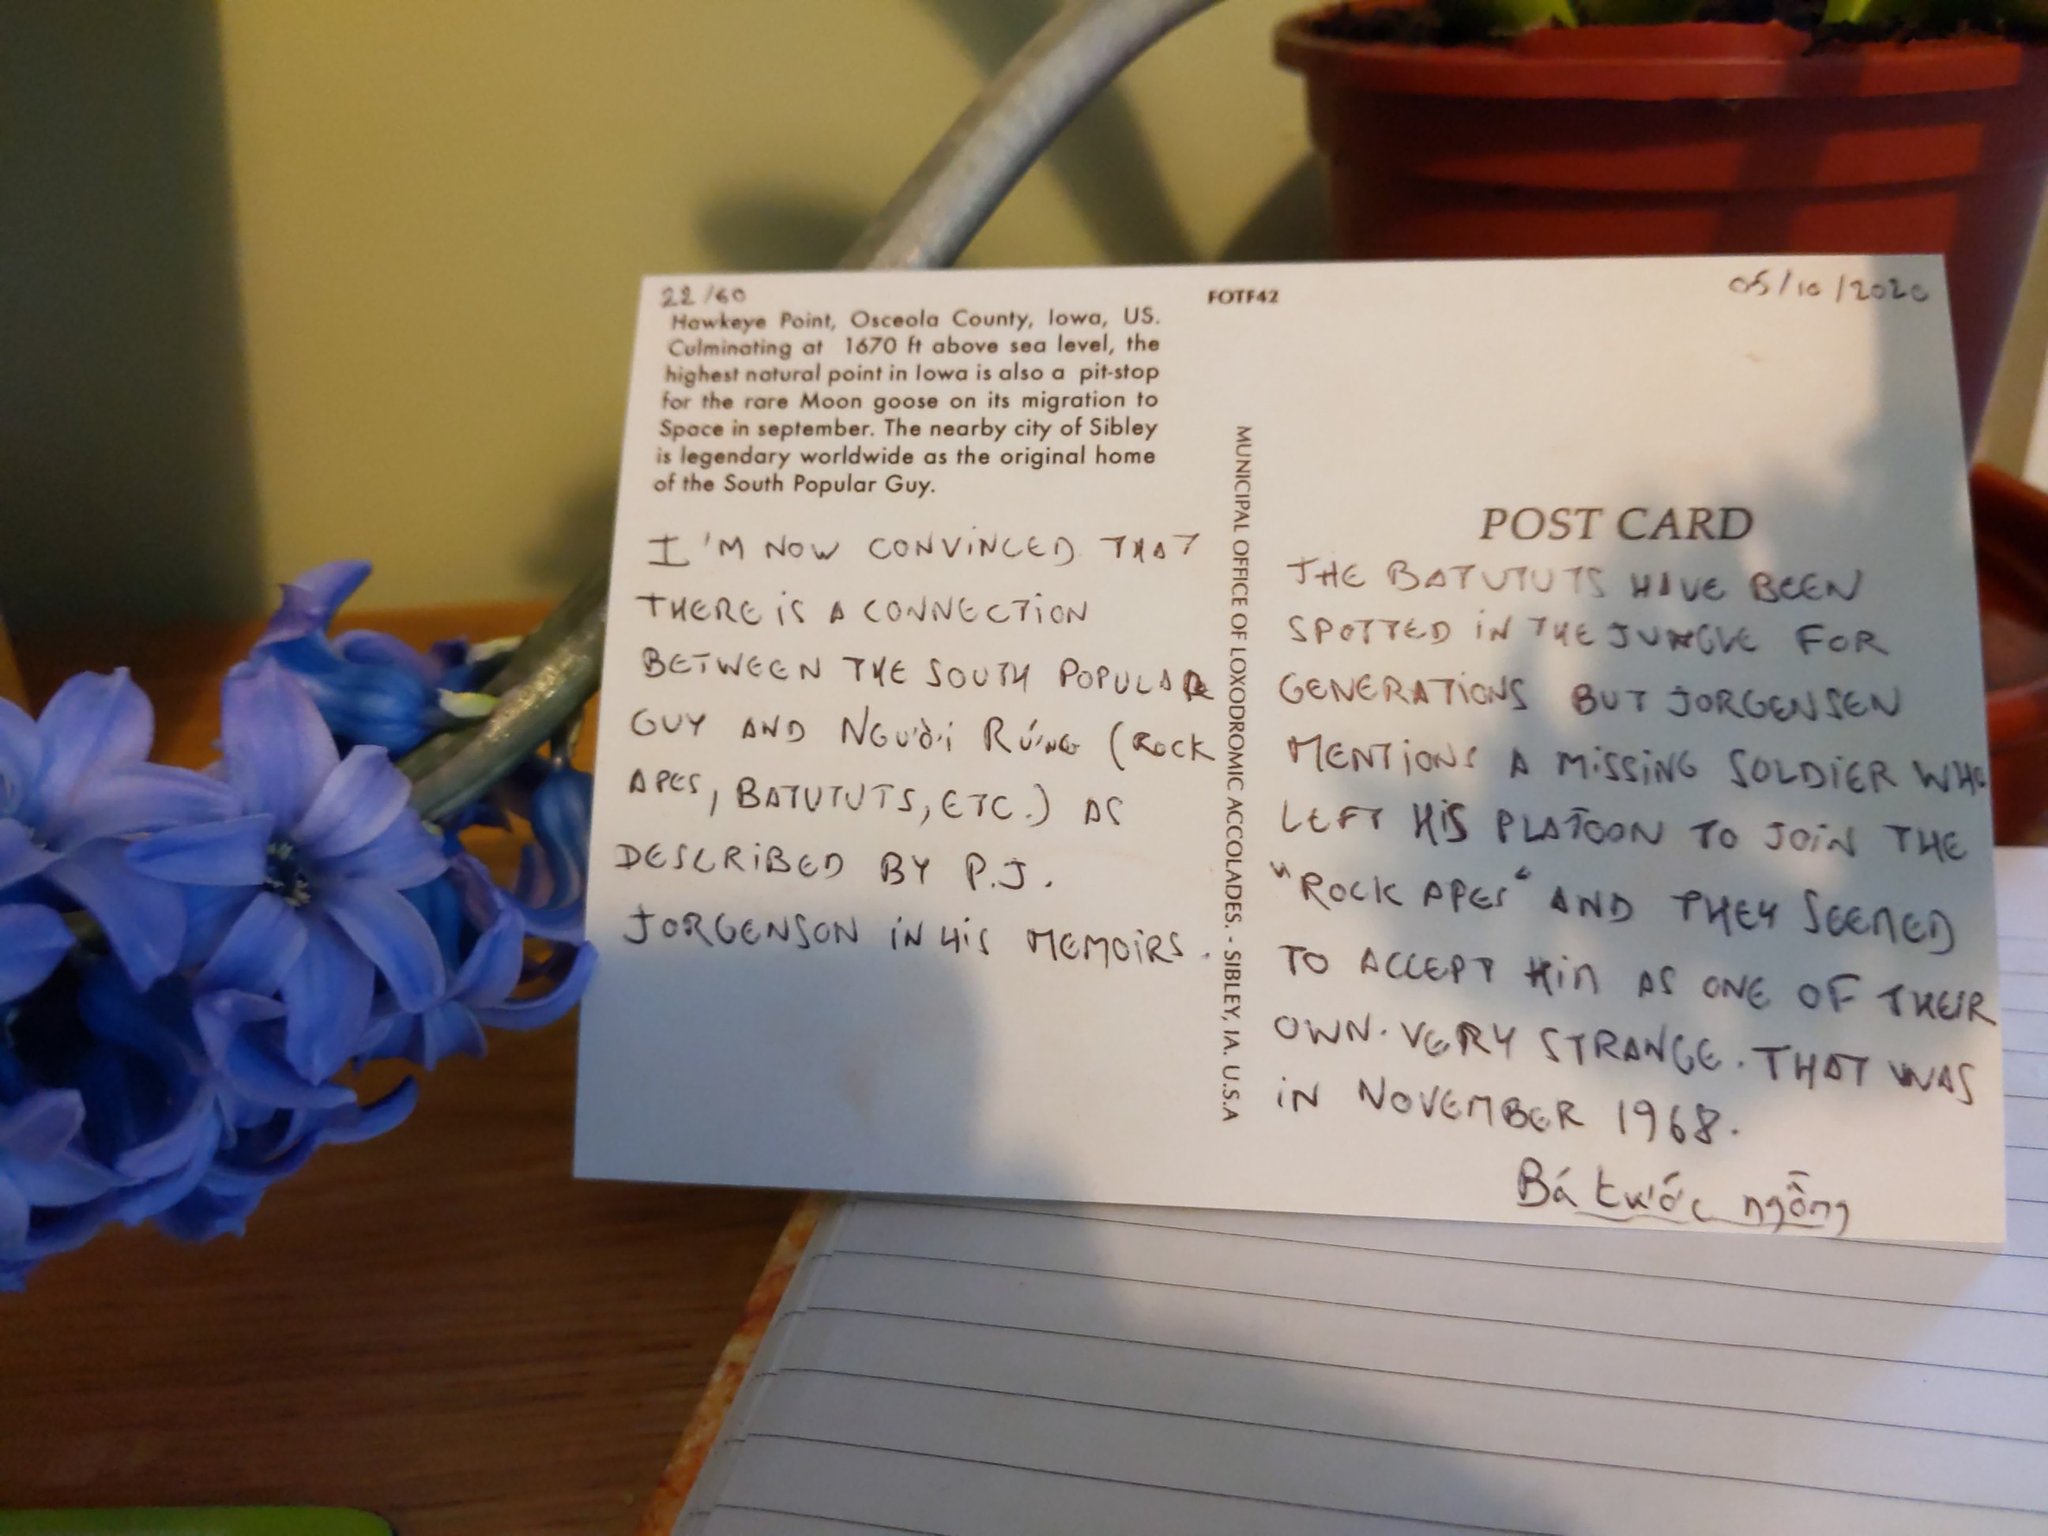 22/60
Hawkeye Point, Osceola County, Iowa, US.
Culminating at 1670 ft above sea level, the
highest natural point in Iowa is also a pit-stop
for the rare Moon goose on its migration to
Space in september. The nearby city of Sibley
is legendary worldwide as the original home
of the South Popular Guy.
I'M NOW CONVINCED THAT
THERE IS A CONNECTION
BETWEEN THE SOUTH POPULAR
GUY AND NGƯỜI RỨNG (ROCK
APES, BATUTUTS, ETC.) AS
DESCRIBED BY P.J.
JORGENSON IN HIS MEMOIRS.
FOTF42
MUNICIPAL OFFICE OF LOXODROMIC ACCOLADES. - SIBLEY, IA. U.S.A
05/10/2020
POST CARD
THE BATUTUTS HAVE BEEN
SPOTTED IN THE JUNGLE FOR
GENERATIONS BUT JORGENSEN
MENTIONS A MISSING SOLDIER WHO
LEFT HIS PLATOON TO JOIN THE
"ROCK APES" AND THEY SEEMED
TO ACCEPT HIM AS ONE OF THEIR
OWN. VERY STRANGE. THAT WAS
IN NOVEMBER 1968.
Bá tước ngỗng